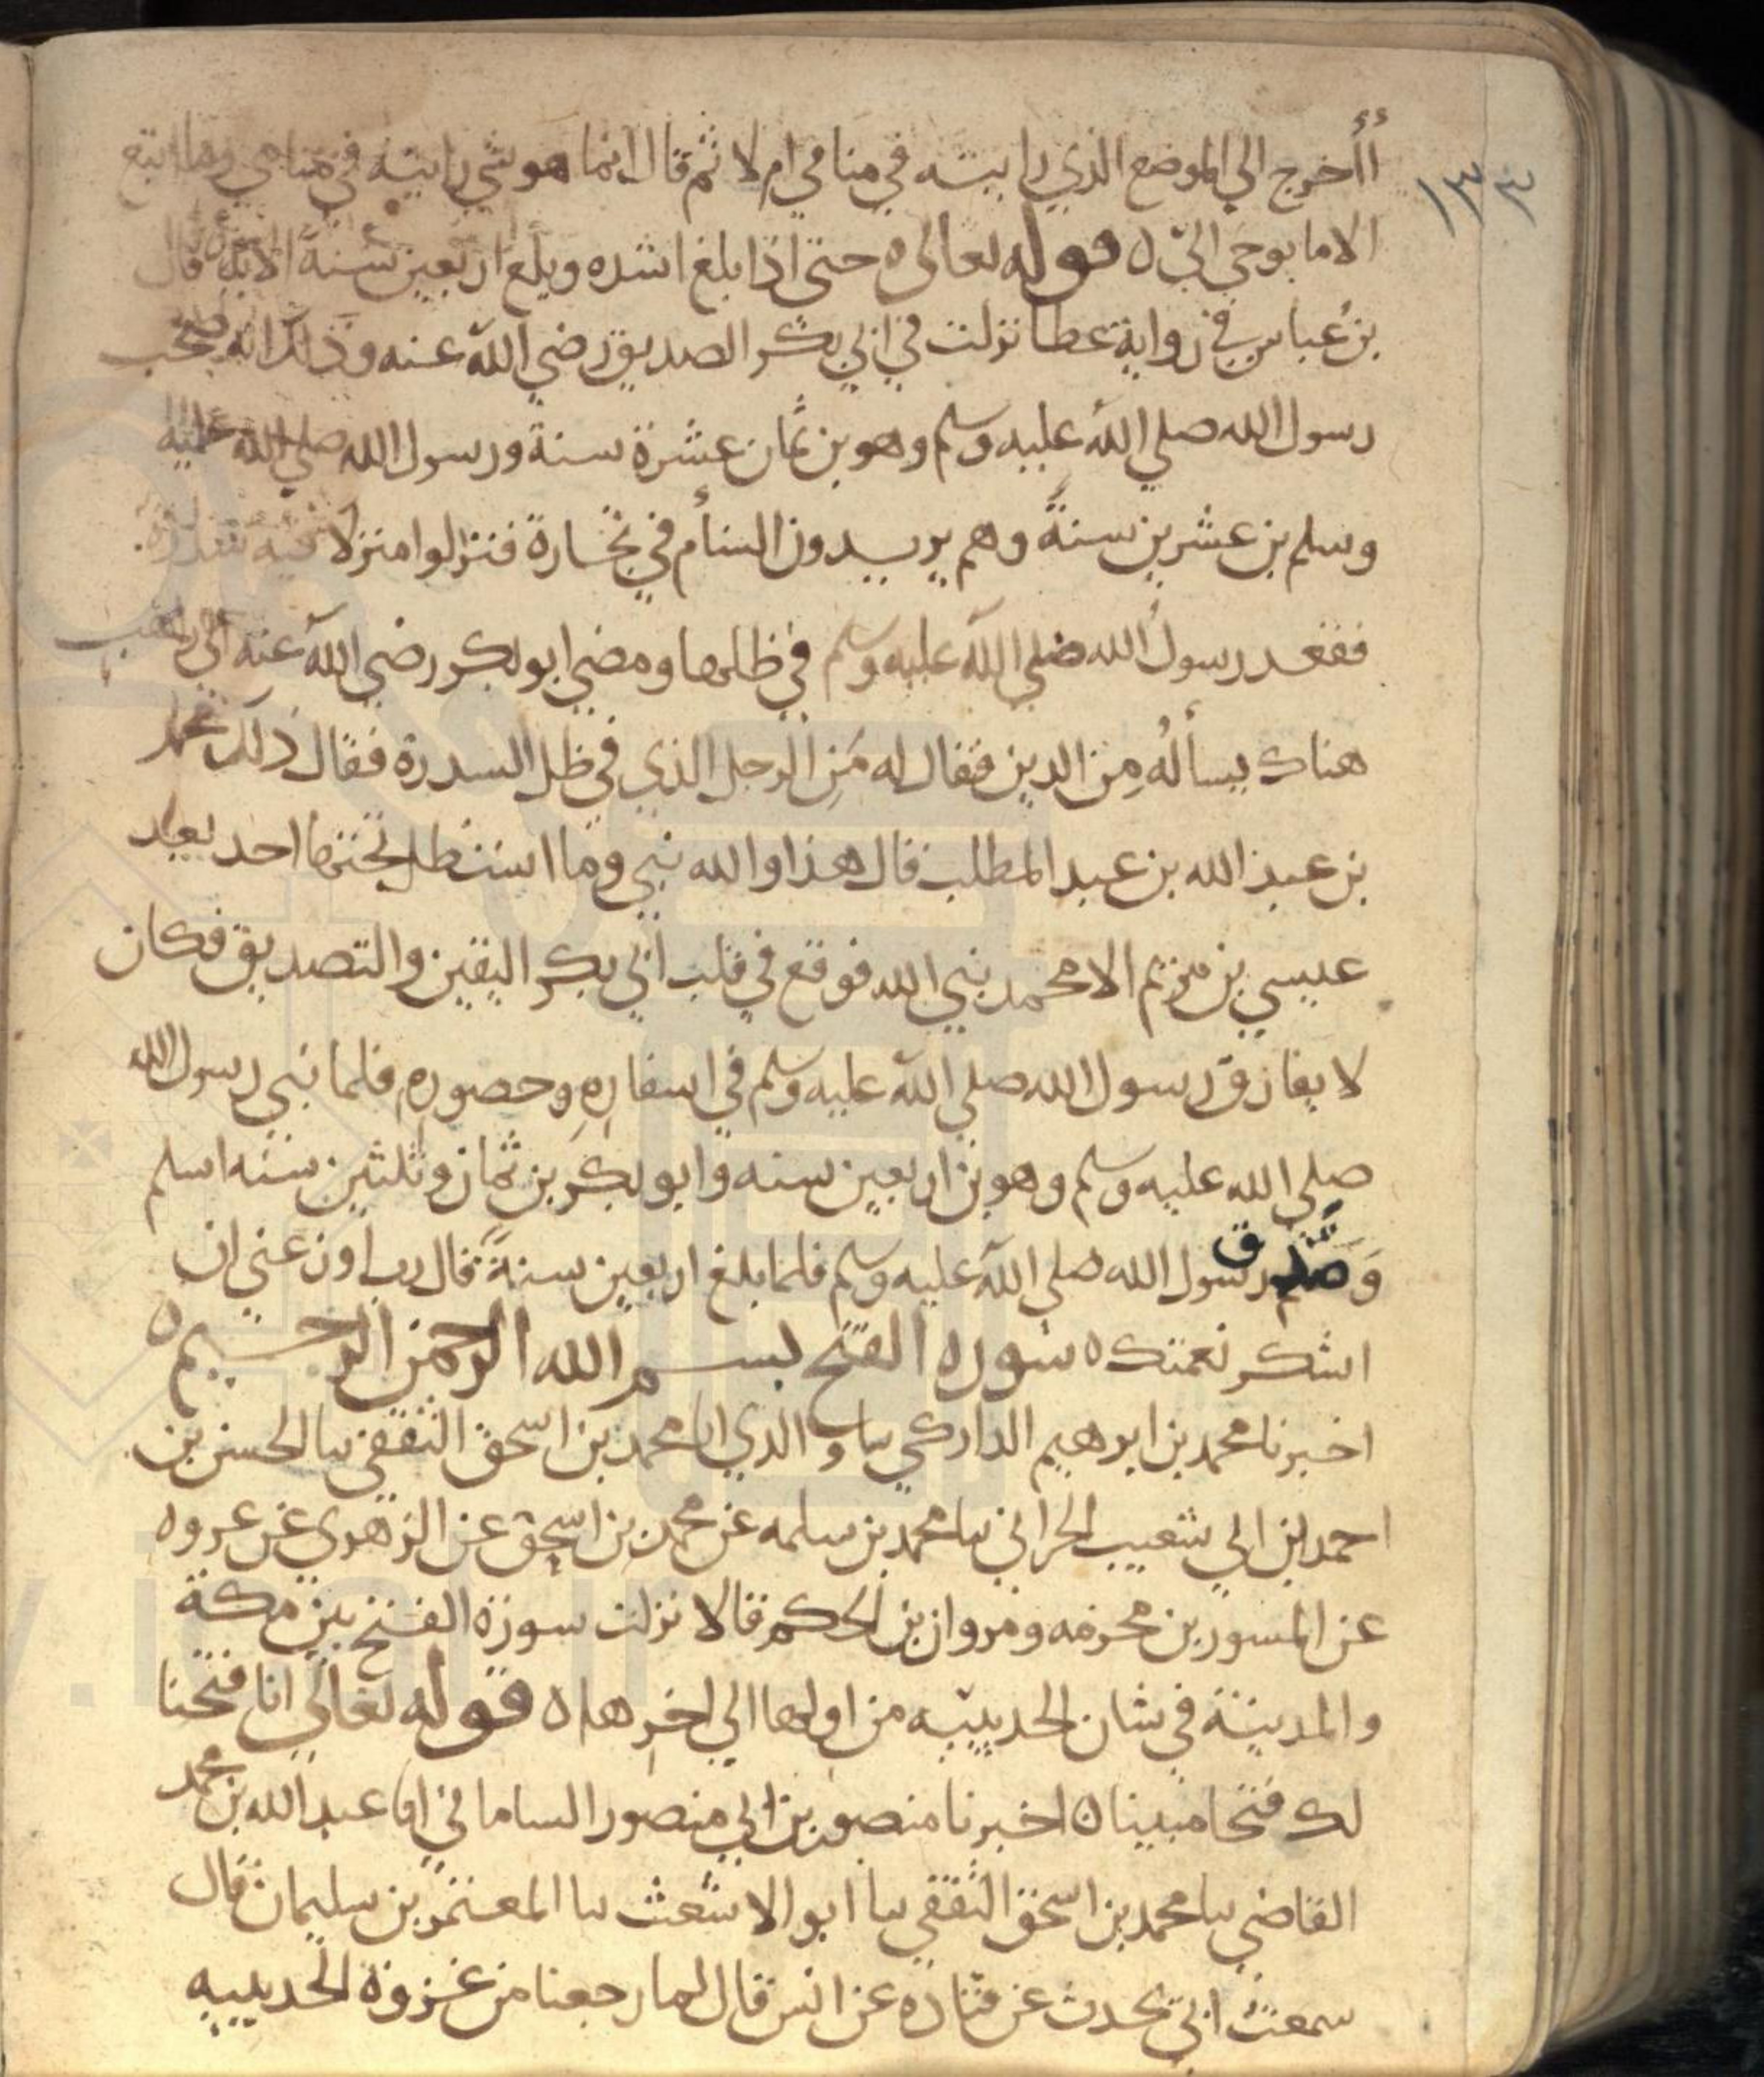 ١٣٣
أأخرج الي الموضع الذي رايته في منامي ام لا ثم قال انما هو شي رايته في منامي وما اتبع
الا ما يوحي الي ه قوله تعالي ه حتي اذا بلغ اشده وبلغ اربعين سنة الاية قال
بن عباس في رواية عطا نزلت في ابي بكر الصديق رضي الله عنه وذلك انه صحب
رسول الله صلي الله عليه وسلم وهو بن ثمان عشرة سنة ورسول الله صلي الله عليه
وسلم بن عشرين سنةً وهم يريدون الشأم في تجارة فنزلوا منزلا فيه سدرة
فقعد رسول الله صلي الله عليه وسلم في ظلها ومضي ابو بكر رضي الله عنه الي راهب
هناك يسأله مِن الدين فقال له مَنِ الرجل الذي في ظل السدرة فقال ذلك محمد
بن عبد الله بن عبد المطلب قال هذا والله نبي وما استظل تحتها احد بعد
عيسي بن مريم الا محمد نبي الله فوقع في قلب ابي بكر اليقين والتصديق فكان
لا يفارق رسول الله صلي الله عليه وسلم في اسفاره وحضوره فلما نبي رسول الله
صلي الله عليه وسلم وهو بن اربعين سنه وابو بكر بن ثمان وثلثين سنه اسلم
وَصَدَّق رسول الله صلي الله عليه وسلم فلما بلغ اربعين سنةً قال رب اوزعني ان
اشكر نعمتك ه سوره الفتح بسم الله الرحمن الرحيم ه
اخبرنا محمد بن ابرهيم الداركي سا والدي انا محمد بن اسحق الثقفي سا الحسن بن
احمد بن ابي شعيب الحراني سا محمد بن سلمه عن محمد بن اسحق عن الزهري عن عروه
عن المسور بن مخرمه ومروان بن الحكم قالا نزلت سورة الفتح بين مكة
والمدينة في شان الحديبيه من اولها الي اخرها ه قوله تعالي انا فتحنا
لك فتحا مبينا ه اخبرنا منصور بن ابي منصور الساماني انا عبد الله بن محمد
القاضي سا محمد بن اسحق الثقفي سا ابو الاشعث سا المعتمر بن سليمان قال
سمعت ابي يحدث عن قتاده عن انس قال لما رجعنا من غزوة الحديبيه